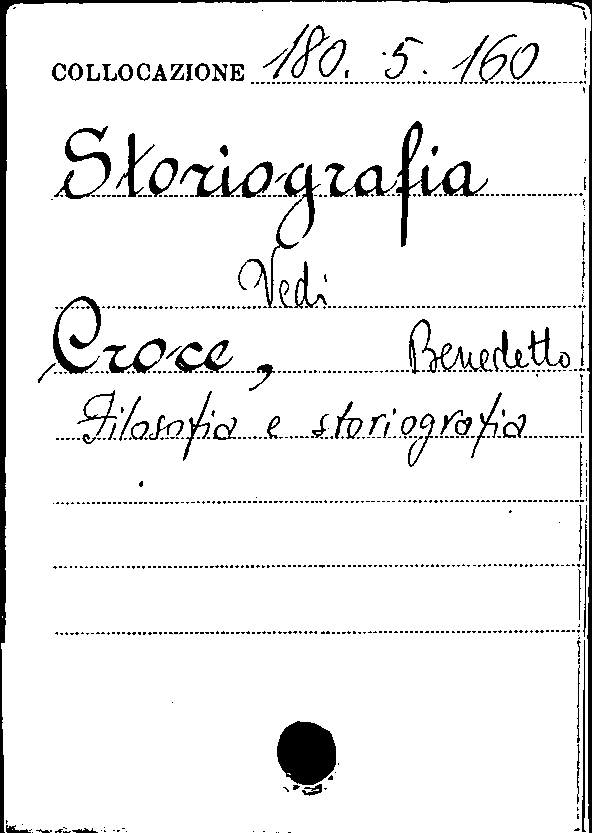 COLLOCAZIONE 180. 5. 160
Storiografia
Vedi
Croce, Benedetto
Filosofia e storiografia